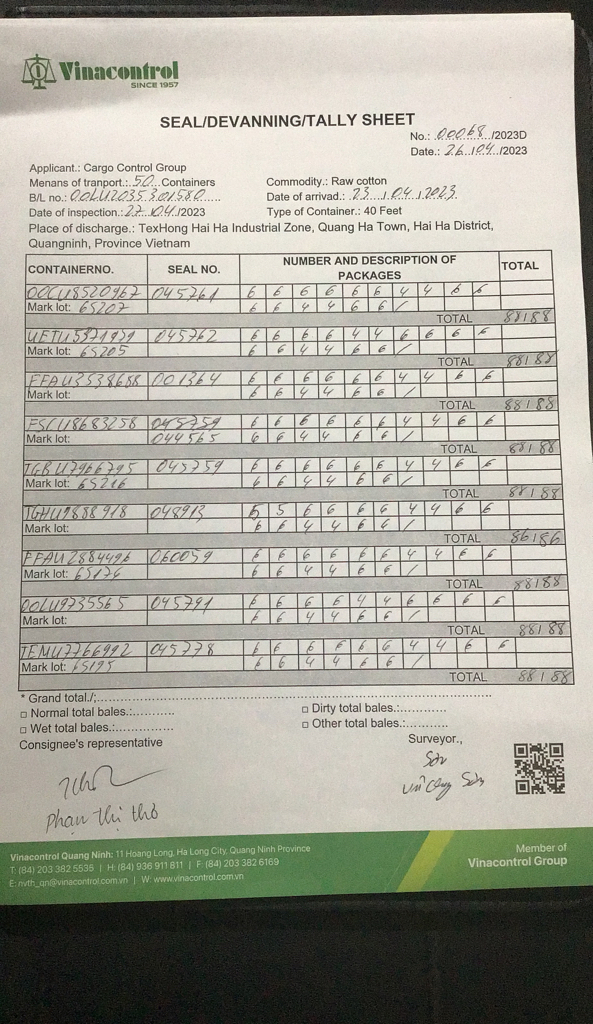 Vinacontrol
SINCE 1957
SEAL/DEVANNING/TALLY SHEET
No.: 00068 /2023D
Date.: 26/04/2023
Applicant.: Cargo Control Group
Menans of tranport.: 50 Containers
Commodity.: Raw cotton
B/L no.: OOLU2035301580
Date of arrived.: 23/04/2023
Date of inspection.: 27/04/2023
Type of Container.: 40 Feet
Place of discharge.: TexHong Hai Ha Industrial Zone, Quang Ha Town, Hai Ha District,
Quangninh, Province Vietnam
CONTAINERNO. SEAL NO. NUMBER AND DESCRIPTION OF PACKAGES TOTAL
OOCU8520967 045761 6 6 6 6 6 6 4 4 6 6
Mark lot: 65207 6 6 4 4 6 6 /
TOTAL 88/88
UETU5371979 045762 6 6 6 6 4 4 6 6 6 6
Mark lot: 65205 6 6 4 4 6 6 /
TOTAL 88/88
FFAU3538658 001364 6 6 6 6 6 6 4 4 6 6
Mark lot: 6 6 4 4 6 6 /
TOTAL 88/88
FSCU8683258 045759 6 6 6 6 6 6 4 4 6 6
Mark lot: 044565 6 6 4 4 6 6 /
TOTAL 88/88
TGBU7966795 045759 6 6 6 6 6 6 4 4 6 6
Mark lot: 65216 6 6 4 4 6 6 /
TOTAL 88/88
TGHU9888918 048913 5 5 6 6 6 6 4 4 6 6
Mark lot: 6 6 4 4 6 6 /
TOTAL 86/86
FFAU2884496 060059 6 6 6 6 6 6 4 4 6 6
Mark lot: 65176 6 6 4 4 6 6 /
TOTAL 88/88
OOLU9735565 045791 6 6 6 6 4 4 6 6 6 6
Mark lot: 6 6 4 4 6 6 /
TOTAL 88/88
TEMU7766992 045778 6 6 6 6 6 6 4 4 6 6
Mark lot: 65195 6 6 4 4 6 6 /
TOTAL 88/88
* Grand total./;
□ Normal total bales.:
□ Dirty total bales.:
□ Wet total bales.:
□ Other total bales.:
Consignee's representative
Surveyor.,
Sơn
Phan Thị Thơ
Vũ Công Sơn
Vinacontrol Quang Ninh: 11 Hoang Long, Ha Long City, Quang Ninh Province
T: (84) 203 382 5535 | H: (84) 936 911 811 | F: (84) 203 382 6169
E: nvth_qn@vinacontrol.com.vn | W: www.vinacontrol.com.vn
Member of
Vinacontrol Group